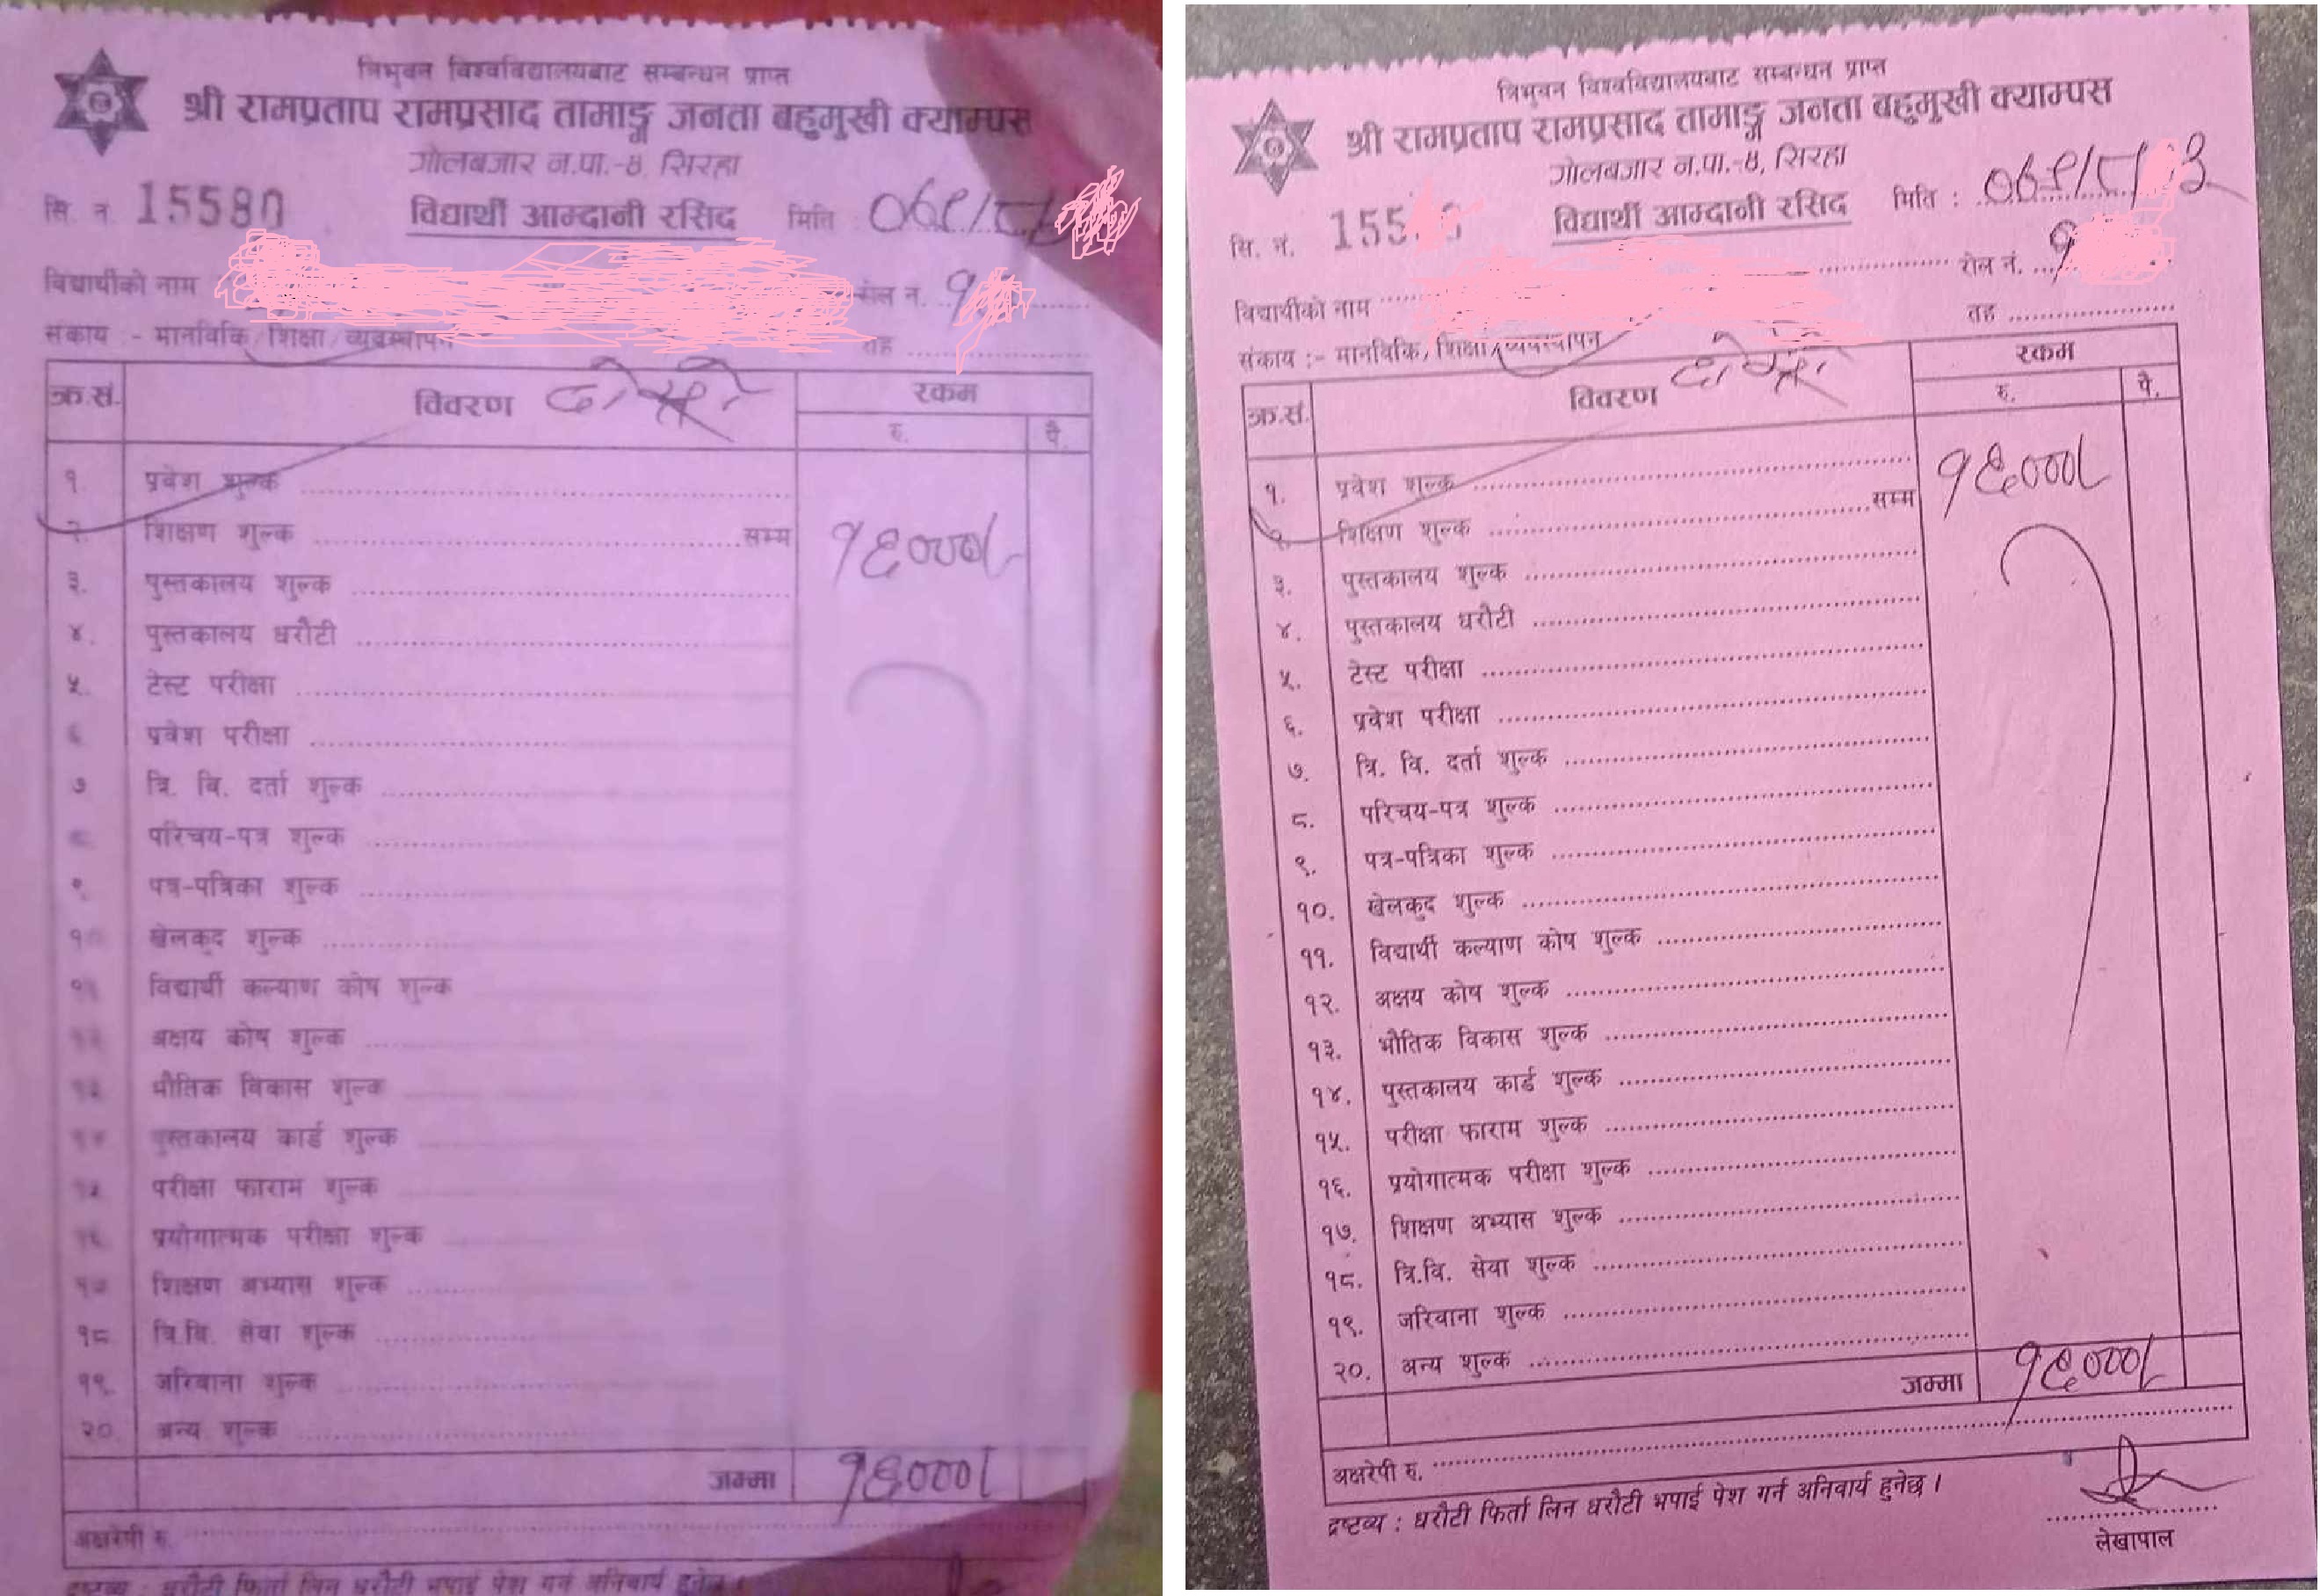 त्रिभुवन विश्वविद्यालयबाट सम्बन्धन प्राप्त
श्री रामप्रताप रामप्रसाद तामाङ्ग जनता बहुमुखी क्याम्पस
गोलबजार न.पा.-४, सिरहा
सि. नं. 15580 विद्यार्थी आम्दानी रसिद मिति : ०७९/८/
विद्यार्थीको नाम रोल नं. १
संकाय :- मानविकि, शिक्षा, व्यवस्थापन तह
क्र.सं. विवरण दोस्रो रकम
रु. पै.
१. प्रवेश शुल्क
२. शिक्षण शुल्क सम्म १६०००/-
३. पुस्तकालय शुल्क
४. पुस्तकालय धरौटी
५. टेस्ट परीक्षा
६. प्रवेश परीक्षा
७. त्रि. वि. दर्ता शुल्क
८. परिचय-पत्र शुल्क
९. पत्र-पत्रिका शुल्क
१०. खेलकुद शुल्क
११. विद्यार्थी कल्याण कोष शुल्क
१२. अक्षय कोष शुल्क
१३. भौतिक विकास शुल्क
१४. पुस्तकालय कार्ड शुल्क
१५. परीक्षा फाराम शुल्क
१६. प्रयोगात्मक परीक्षा शुल्क
१७. शिक्षण अभ्यास शुल्क
१८. त्रि.वि. सेवा शुल्क
१९. जरिवाना शुल्क
२०. अन्य शुल्क
जम्मा १६०००/
अक्षरेपी रु.
द्रष्टव्य : धरौटी फिर्ता लिन धरौटी भपाई पेश गर्न अनिवार्य हुनेछ ।
त्रिभुवन विश्वविद्यालयबाट सम्बन्धन प्राप्त
श्री रामप्रताप रामप्रसाद तामाङ्ग जनता बहुमुखी क्याम्पस
गोलबजार न.पा.-४, सिरहा
सि. नं. 155 विद्यार्थी आम्दानी रसिद मिति : ०७९/८/ ३
विद्यार्थीको नाम रोल नं. १
संकाय :- मानविकि, शिक्षा, व्यवस्थापन तह
क्र.सं. विवरण दोस्रो रकम
रु. पै.
१. प्रवेश शुल्क १६०००/
२. शिक्षण शुल्क सम्म
३. पुस्तकालय शुल्क
४. पुस्तकालय धरौटी
५. टेस्ट परीक्षा
६. प्रवेश परीक्षा
७. त्रि. वि. दर्ता शुल्क
८. परिचय-पत्र शुल्क
९. पत्र-पत्रिका शुल्क
१०. खेलकुद शुल्क
११. विद्यार्थी कल्याण कोष शुल्क
१२. अक्षय कोष शुल्क
१३. भौतिक विकास शुल्क
१४. पुस्तकालय कार्ड शुल्क
१५. परीक्षा फाराम शुल्क
१६. प्रयोगात्मक परीक्षा शुल्क
१७. शिक्षण अभ्यास शुल्क
१८. त्रि.वि. सेवा शुल्क
१९. जरिवाना शुल्क
२०. अन्य शुल्क
जम्मा १६०००/
अक्षरेपी रु.
द्रष्टव्य : धरौटी फिर्ता लिन धरौटी भपाई पेश गर्न अनिवार्य हुनेछ ।
लेखापाल